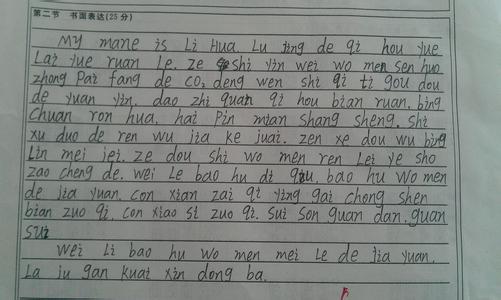 第二节 书面表达(25分)
My mane is Li Hua. Lu ting de qi hou yue
Lai yue ruan Le. ze shi yin wei wo men sen huo
zhong Pai fang de CO₂ deng wen shi qi ti gou dou
de yuan yin. dao zhi quan qi hou bian ruan. bing
chuan ron hua. hai Pin mian shang sheng. shi
xu duo de ren wu jia ke juai. zen xe dou wu bing
Lin mei jei. ze dou shi wo men ren Lei ye sho
zao cheng de. wei Le bao hu di qiu. bao hu wo men
de jia yuan. con xian zai qi ying gai chong shen
bian zuo qi. con xiao si zuo qi. sui son guan dan. guan
sui
Wei Li bao hu wo men mei Le de jia yuan.
La ju gan kuai xin dong ba.